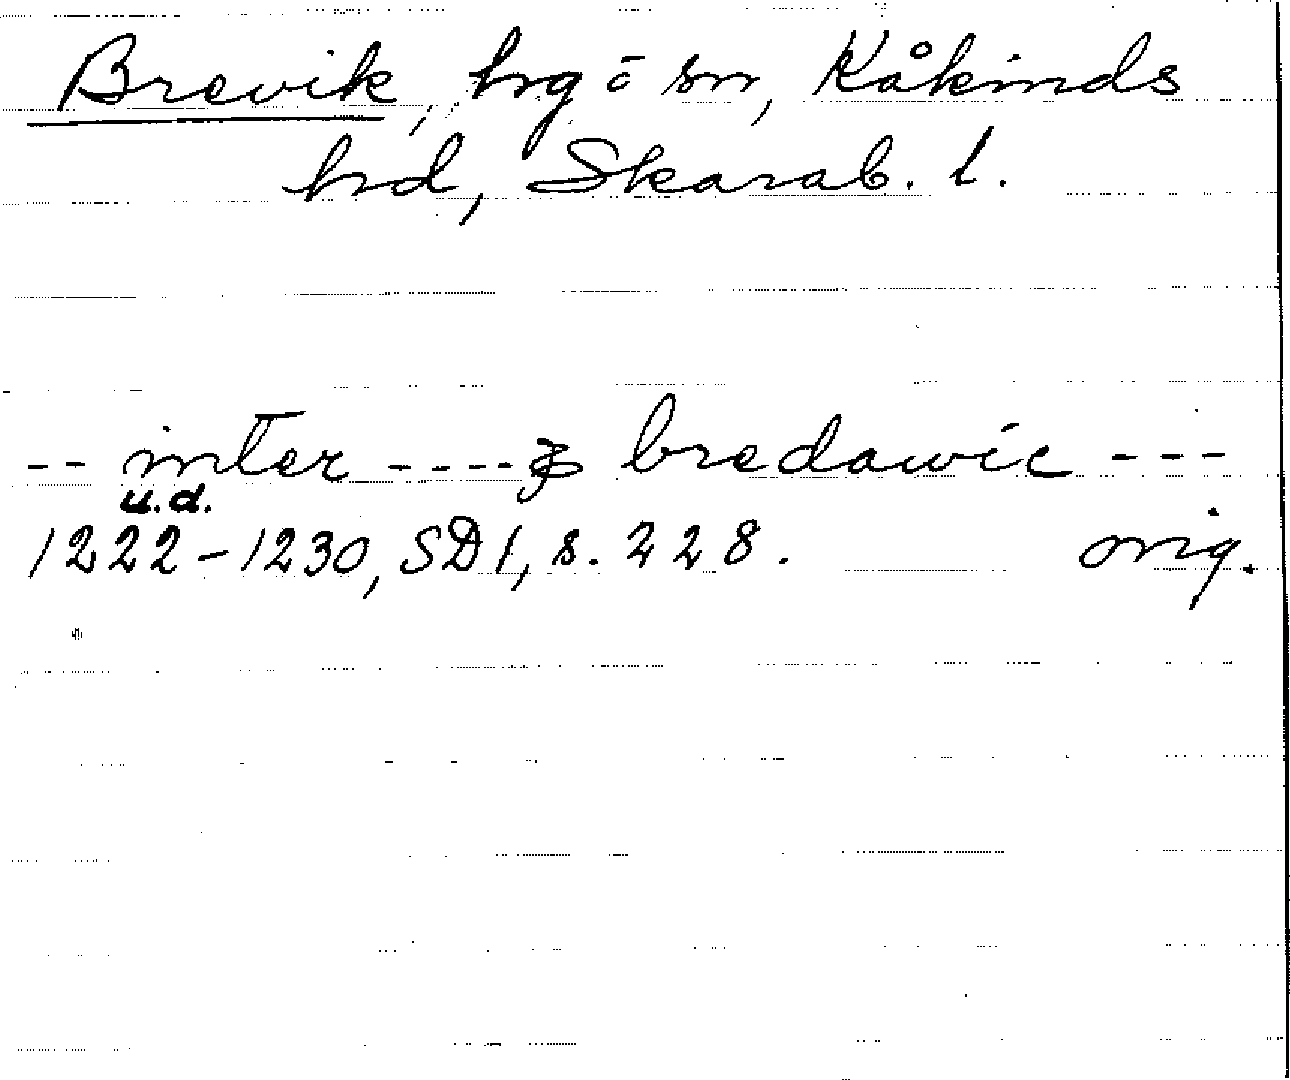 Brevik, hrg o sn, Kåkinds
hd, Skarab. l.
-- inter ---- & bredawic ---
u.d.
1222-1230, SD 1, s. 228. orig.